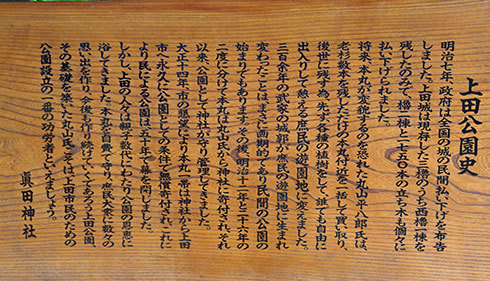 上田公園史
明治七年、政府は全国の城の民間払い下げを布告
しました。上田城は現存した三櫓のうち西櫓一棟を
残したのみで、櫓一棟と七五〇本の立ち木も個々に
払い下げられました。
将来、本丸が変貌するのを恐れた丸山平八郎氏は、
老杉数本を残しただけの本丸付近を一括して買い取り、
後世に残す為、先ず各種の植樹をして、誰でも自由に
出入りして憩える庶民の遊園地に変えました。
三百余年の武家の城郭が庶民の遊園地に生まれ
変わったことは、まさに画期的であり民間の公園の
始まりでもあります。その後、明治十二年と二十六年の
二度に分けて本丸は丸山氏から神社に寄付され、それ
以来、公園として神社が守り管理してきました。
大正十四年、市の懇望により本丸一帯は神社から上田
市へ永久に公園としての条件で無償寄付され、これに
より民による公園は五十年で幕を閉じました。
しかし、上田の人々は親子数代にわたり公園の恩恵に
浴してきました。本丸を自費で守り、庶民大衆に数々の
思い出を作り、今後も作り続けていくであろう上田公園、
その基礎を築いた丸山氏こそは、上田市民のための
公園設立の一番の功労者といえましょう。
眞田神社